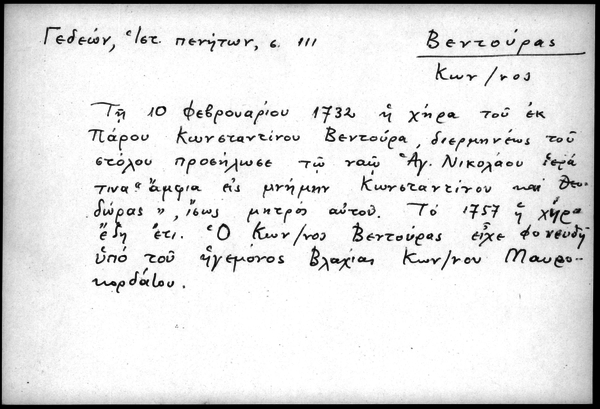 Γεδεών, Ἱστ. πενήτων, σ. 111
Βεντούρας
Κων/νος
Τῇ 10 φεβρουαρίου 1732 ἡ χήρα τοῦ ἐκ
Πάρου Κωνσταντίνου Βεντούρα, διερμηνέως τοῦ
στόλου προσήλωσε τῷ ναῷ Ἁγ. Νικολάου ἱερά
τινα "ἄμφια εἰς μνήμην Κωνσταντίνου καὶ Θεο-
δώρας", ἴσως μητρός αὐτοῦ. Τό 1757 ἡ χήρα
ἔζη ἔτι. Ὁ Κων/νος Βεντούρας εἶχε φονευθῆ
ὑπό τοῦ ἡγεμόνος Βλαχίας Κων/νου Μαυρο-
κορδάτου.